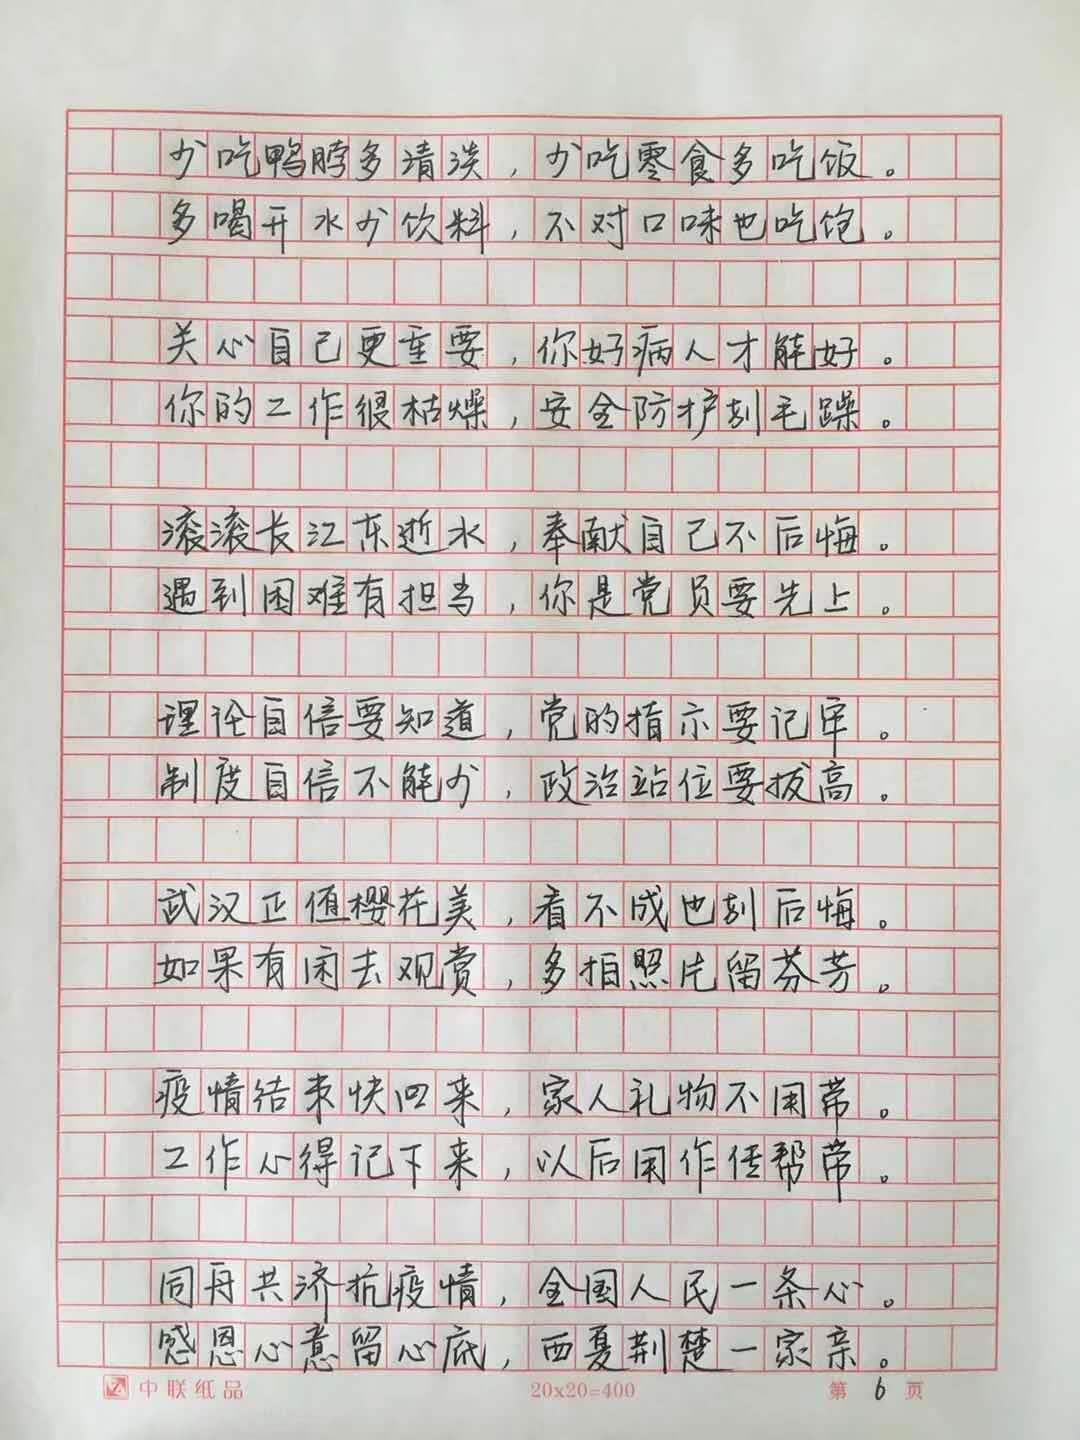 少吃鸭脖多清淡，少吃零食多吃饭。
多喝开水少饮料，不对口味也吃饱。
关心自己更重要，你好病人才能好。
你的工作很枯燥，安全防护别毛躁。
滚滚长江东逝水，奉献自己不后悔。
遇到困难有担当，你是党员要先上。
理论自信要知道，党的指示要记牢。
制度自信不能少，政治站位要拔高。
武汉正值樱花美，看不成也别后悔。
如果有闲去观赏，多拍照片留芬芳。
疫情结束快回来，家人礼物不用带。
工作心得记下来，以后用作传帮带。
同舟共济抗疫情，全国人民一条心。
感恩心意留心底，西夏荆楚一家亲。
中联纸品 20x20=400 第 6 页